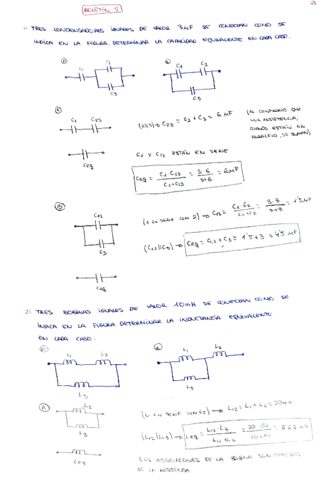 BOLETÍN 5
1) TRES CONDENSADORES IGUALES DE VALOR 3μF SE CONECTAN COMO SE
INDICA EN LA FIGURA. DETERMINAR LA CAPACIDAD EQUIVALENTE EN CADA CASO.
C1 C2 C3
C1 C2 C3
C1 C23
C23 = C2 + C3 = 6μF
(AL CONTRARIO QUE
UNA RESISTENCIA,
CUANDO ESTÁN EN
PARALELO, SE SUMAN)
Ceq
C1 Y C23 ESTÁN EN SERIE
Ceq = C1·C23 / C1+C23 = 3·6 / 3+6 = 2μF
C12
C3
C12 = C1·C2 / C1+C2 = 3·3 / 3+3 = 1'5μF
(C12//C3) → Ceq = C12 + C3 = 1'5 + 3 = 4'5μF
Ceq
2) TRES BOBINAS IGUALES DE VALOR 10mH SE CONECTAN COMO SE
INDICA EN LA FIGURA DETERMINAR LA INDUCTANCIA EQUIVALENTE
EN CADA CASO.
L1 L2 L3
L1 L2 L3
A
L12
L3
(L1 EN SERIE CON L2) → L12 = L1 + L2 = 20mH
(L12//L3) → Leq = L12·L3
Leq
LAS ASOCIACIONES DE LA BOBINA SON COMO